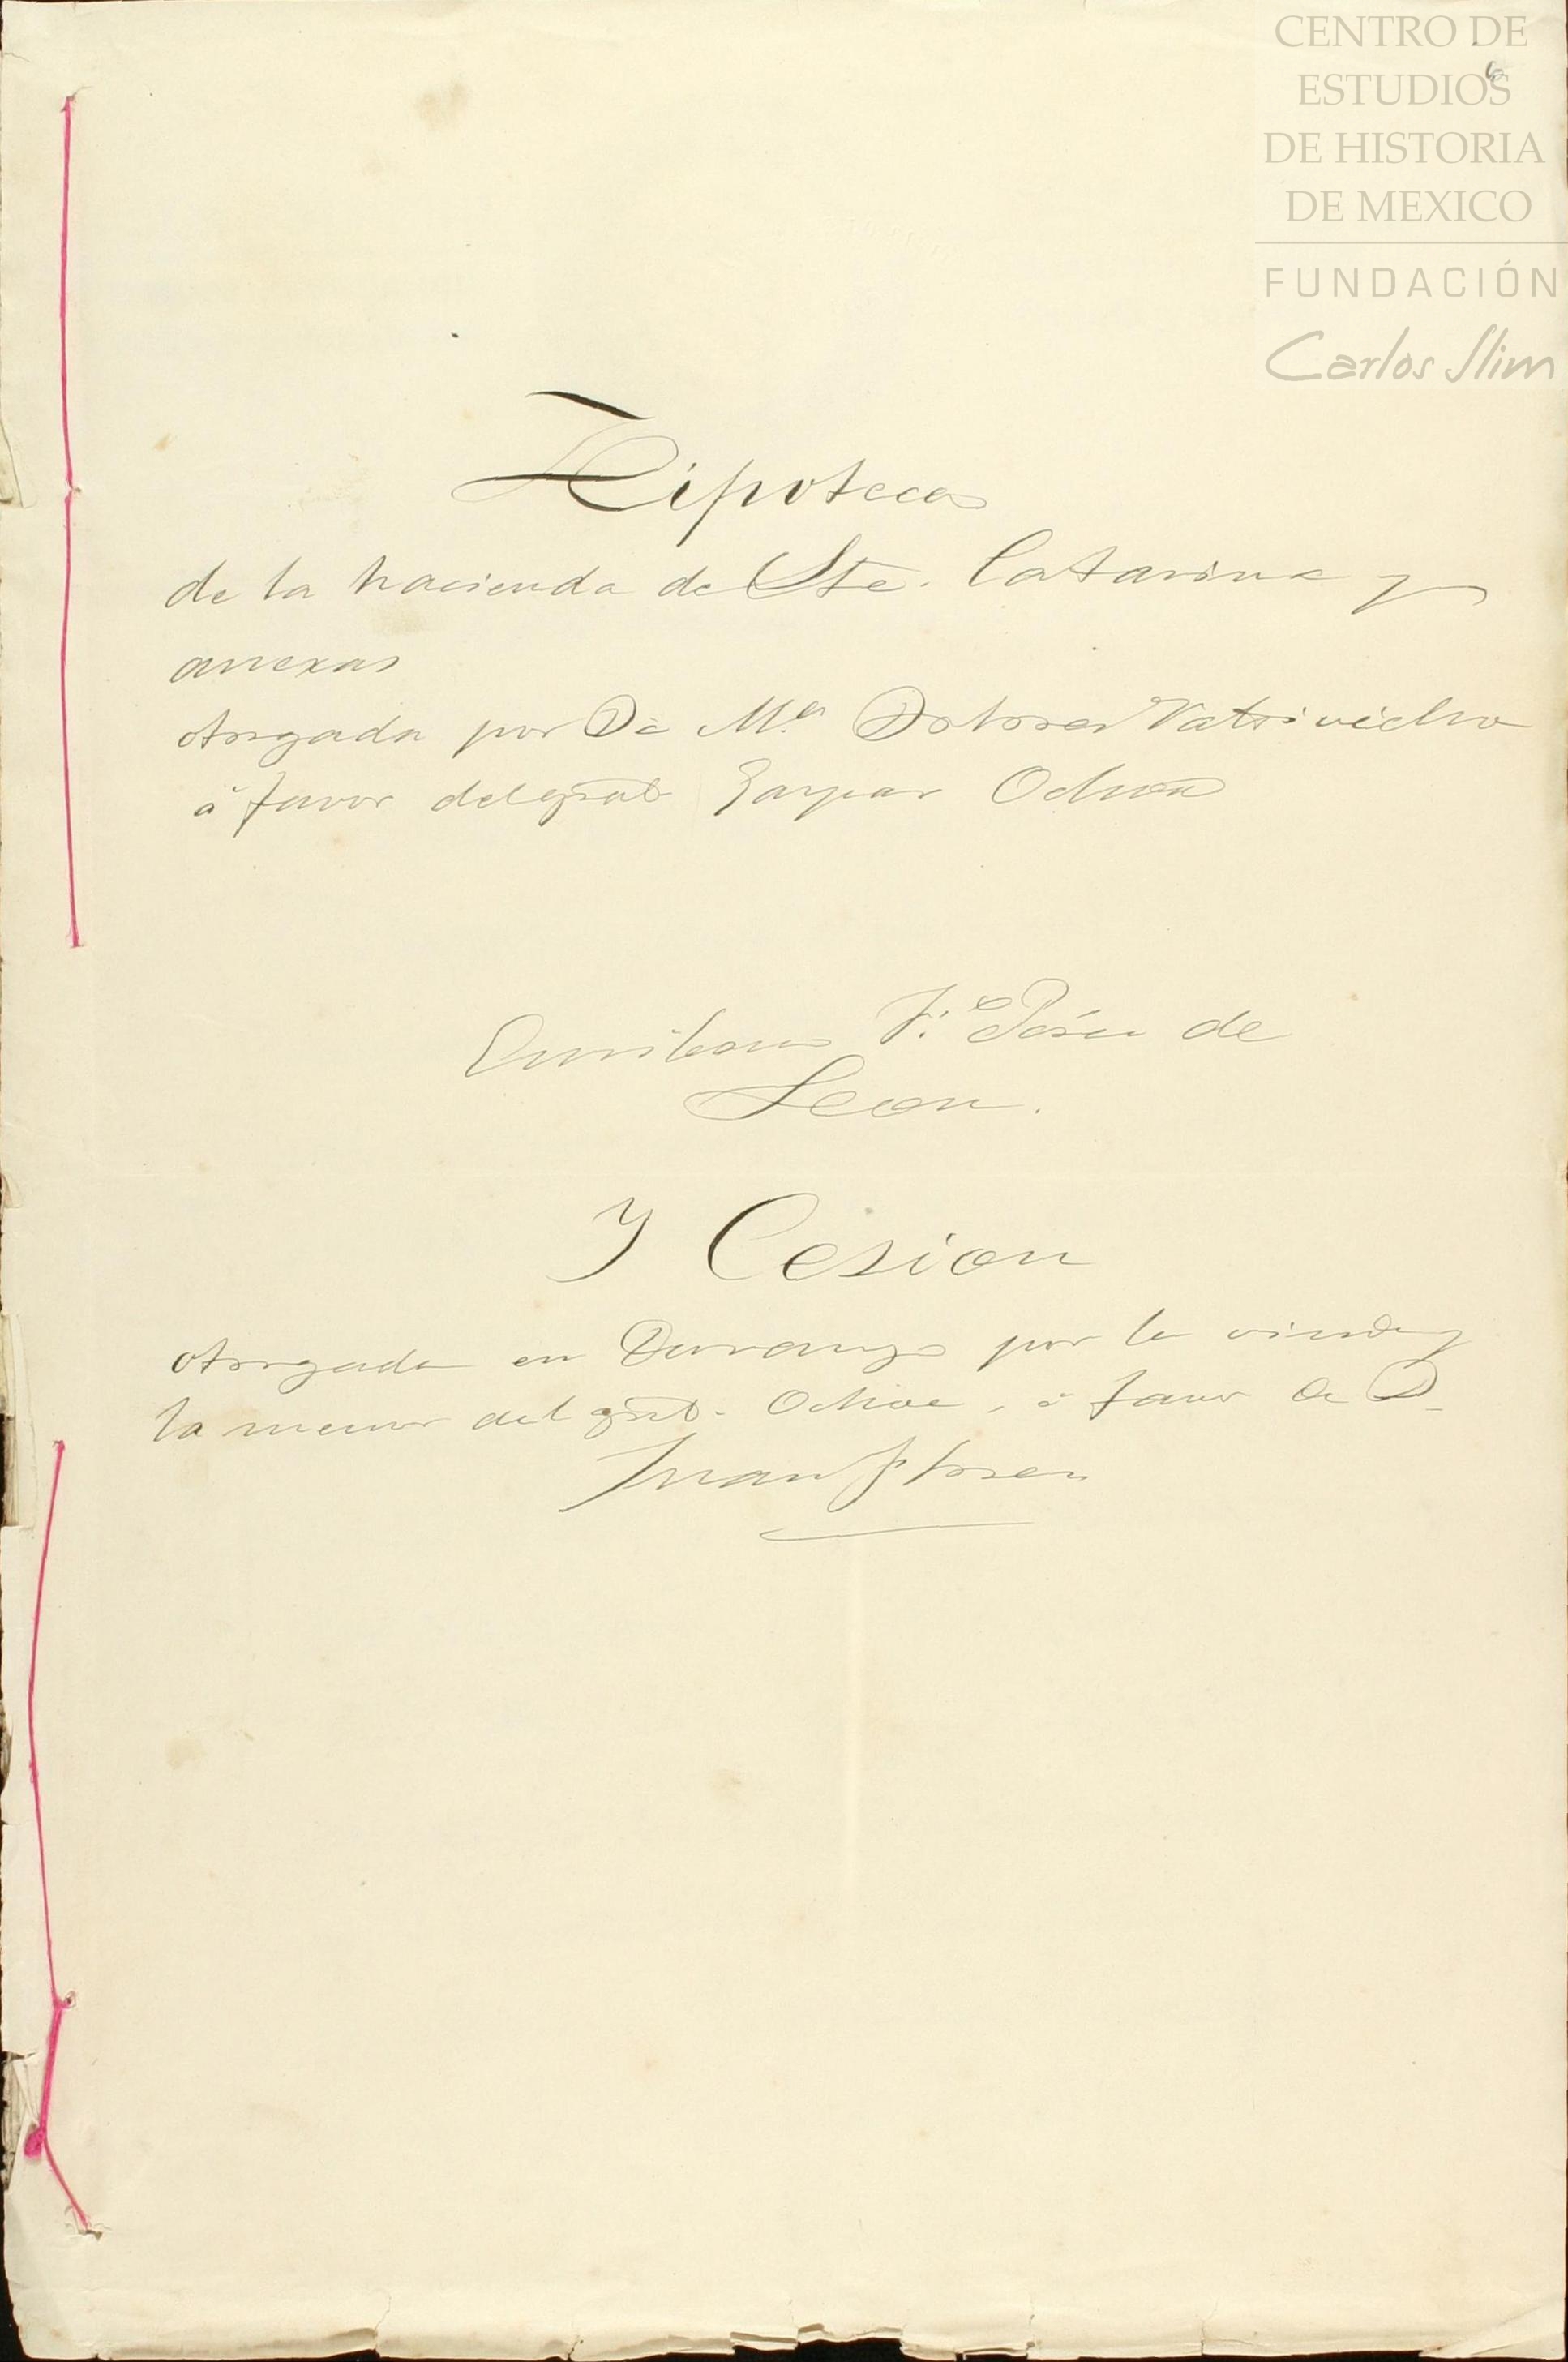 CENTRO DE
ESTUDIOS
DE HISTORIA
DE MEXICO
FUNDACIÓN
Carlos Slim
Hipoteca
de la hacienda de Sta. Catarina y
anexas
otorgada por Da Ma. Dolores Valdivielso
á favor del gral Gaspar Ochoa
Escribano F. Pérez de
Leon.
Y Cesion
otorgada en Durango por la viuda y
la menor del gral. Ochoa, á favor de D.
Juan Flores